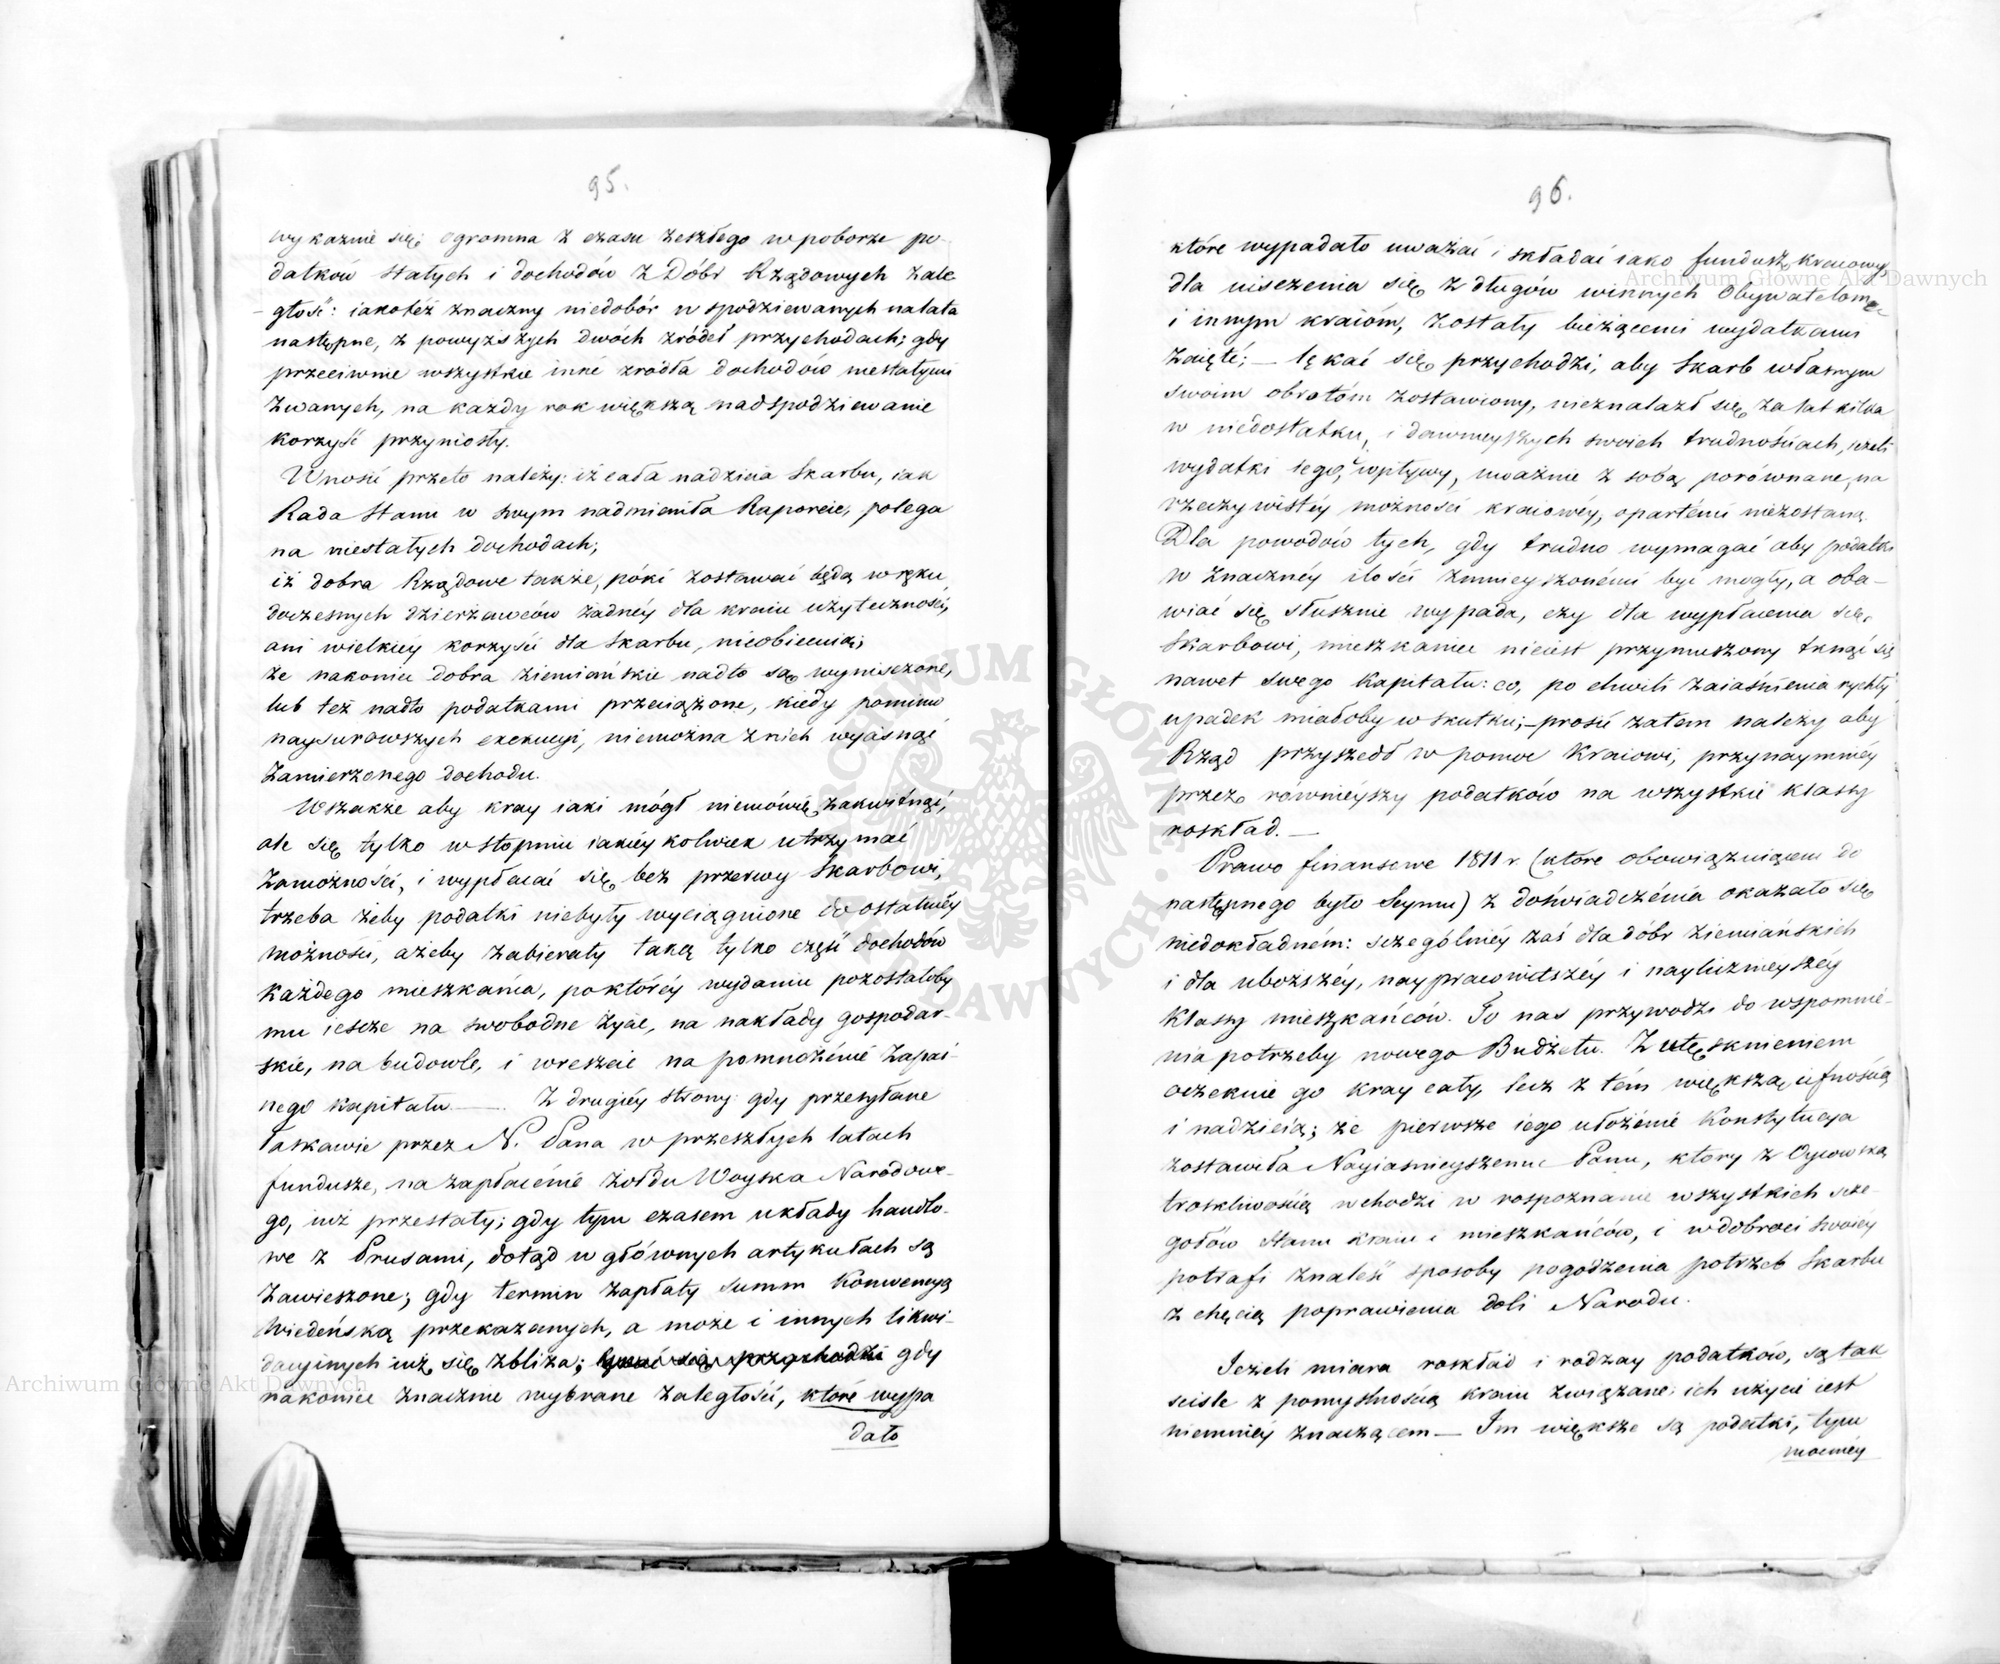 95.
wykaznie się; ogromna z czasu zeszłego w poborze po-
datków stałych i dochodów z Dóbr Rządowych zale
-głość: iakotéż znaczny niedobór w spodziewanych na lata
następne, z powyższych dwóch zródeł przychodach; gdy
przeciwnie wszystkie inne zrodła dochodów niestałymi
zwanych, na każdy rok większą nadspodziewanie
korzyść przyniosły.
Wnosić przeto należy: iż cała nadzieia Skarbu, iak
Rada Stanu w swym nadmieniła Raporcie, polega
na niestałych dochodach;
iż dobra Rządowe także, póki zostawać będą w ręku
doczesnych dzierżawców żadnéy dla kraiu użyteczności,
ani wielkiéy korzyści dla Skarbu, nieobiecuią;
że nakoniec dobra ziemiańskie nadto są wyniszczone,
lub też nadto podatkami przeciążone, kiedy pomimo
naysurowszych exekucyi, niemożna z nich wyciągnąć
zamierzonego dochodu.
Wszakże aby kray iaki mógł niemówię zakwitnąć,
ale się tylko w stopniu iakiéy kolwiek utrzymać
zamożności, i wypłacać się bez przerwy Skarbowi,
trzeba żeby podatki niebyły wyciągnione do ostatniéy
możności, ażeby zabierały taką tylko część dochodów
każdego mieszkańca, po któréy wydaniu pozostałoby
mu iescze na swobodne życie, na nakłady gospodar-
skie, na budowle, i wreszcie na pomnożénié zapaś-
nego kapitału. — Z drugiéy strony gdy przesyłane
łaskawie przez N. Pana w przeszłych latach
fundusze, na zapłacénié żołdu Woyska Narodowe-
go, iuż przestały; gdy tym czasem układy handlo-
we z Prusami, dotąd w głównych artykułach są
zawieszone; gdy termin zapłaty summ Konwencyą
Wiedeńską przekazanych, a może i innych likwi-
dacyinych iuż się zbliża; lękać się przychodzi gdy
nakoniec znacznie wybrane zaległości, któré wypa
dało
96.
któré wypadało uważać i składać iako fundusz kraiowy
dla uiszczenia się z długów winnych Obywatelom
i innym kraióm, zostały bieżącemi wydatkami
zaięté; — lękać się przychodzi, aby Skarb własnym
swoim obrotóm zostawiony, nieznalazł się za lat kilka
w niedostatku, i dawnieyszych swoich trudnościach, ieżeli
wydatki iego, i wpływy, uważnie z sobą porównane, na
rzeczywistéy możności kraiowéy, opartémi niezostaną.
Dla powodów tych, gdy trudno wymagać aby podatki
w znacznéy ilości zmnieyszonémi być mogły, a oba-
wiać się słusznie wypada, czy dla wypłacenia się
Skarbowi, mieszkaniec nieiest przymuszony tknąć się
nawet swego kapitału: co, po chwili zaiaśnienia rychły
upadek miałoby w skutku; — prosić zatem należy aby
Rząd przyszedł w pomoc Kraiowi, przynaymniéy
przez równiéyszy podatków na wszystkie klassy
rozkład. —
Prawo finansowe 1811 r (które obowiązuiącem do
następnego było Seymu) z doświadczénia okazało się
niedokładném: sczególniéy zaś dla dóbr ziemiańskich
i dla uboższéy, naypracowitszéy i naylicznieyszéy
klassy mieszkańców. To nas przywodzi do wspomnie-
nia potrzeby nowego Budżetu. Z utęsknieniem
oczekuie go kray cały, lecz z tém większą ufnością
i nadzieią; że pierwsze iego ułożénié Konstytucya
zostawiła Nayiaśnieyszemu Panu, ktory z Oycowską
troskliwością wchodzi w rospoznanie wszystkich scze-
gółów Stanu kraiu i mieszkańców, i w dobroci swoiéy
potrafi znaleść sposoby pogodzenia potrzeb Skarbu
z chęcią poprawienia doli Narodu.
Jeżeli miara roskład i rodzay podatków, są tak
ściśle z pomyślnością kraiu związane, ich użycié iest
niemniéy znaczącem — Im większe są podatki, tym
mocniéy
Archiwum Główne Akt Dawnych
Archiwum Główne Akt Dawnych
ARCHIWUM GŁÓWNE AKT DAWNYCH